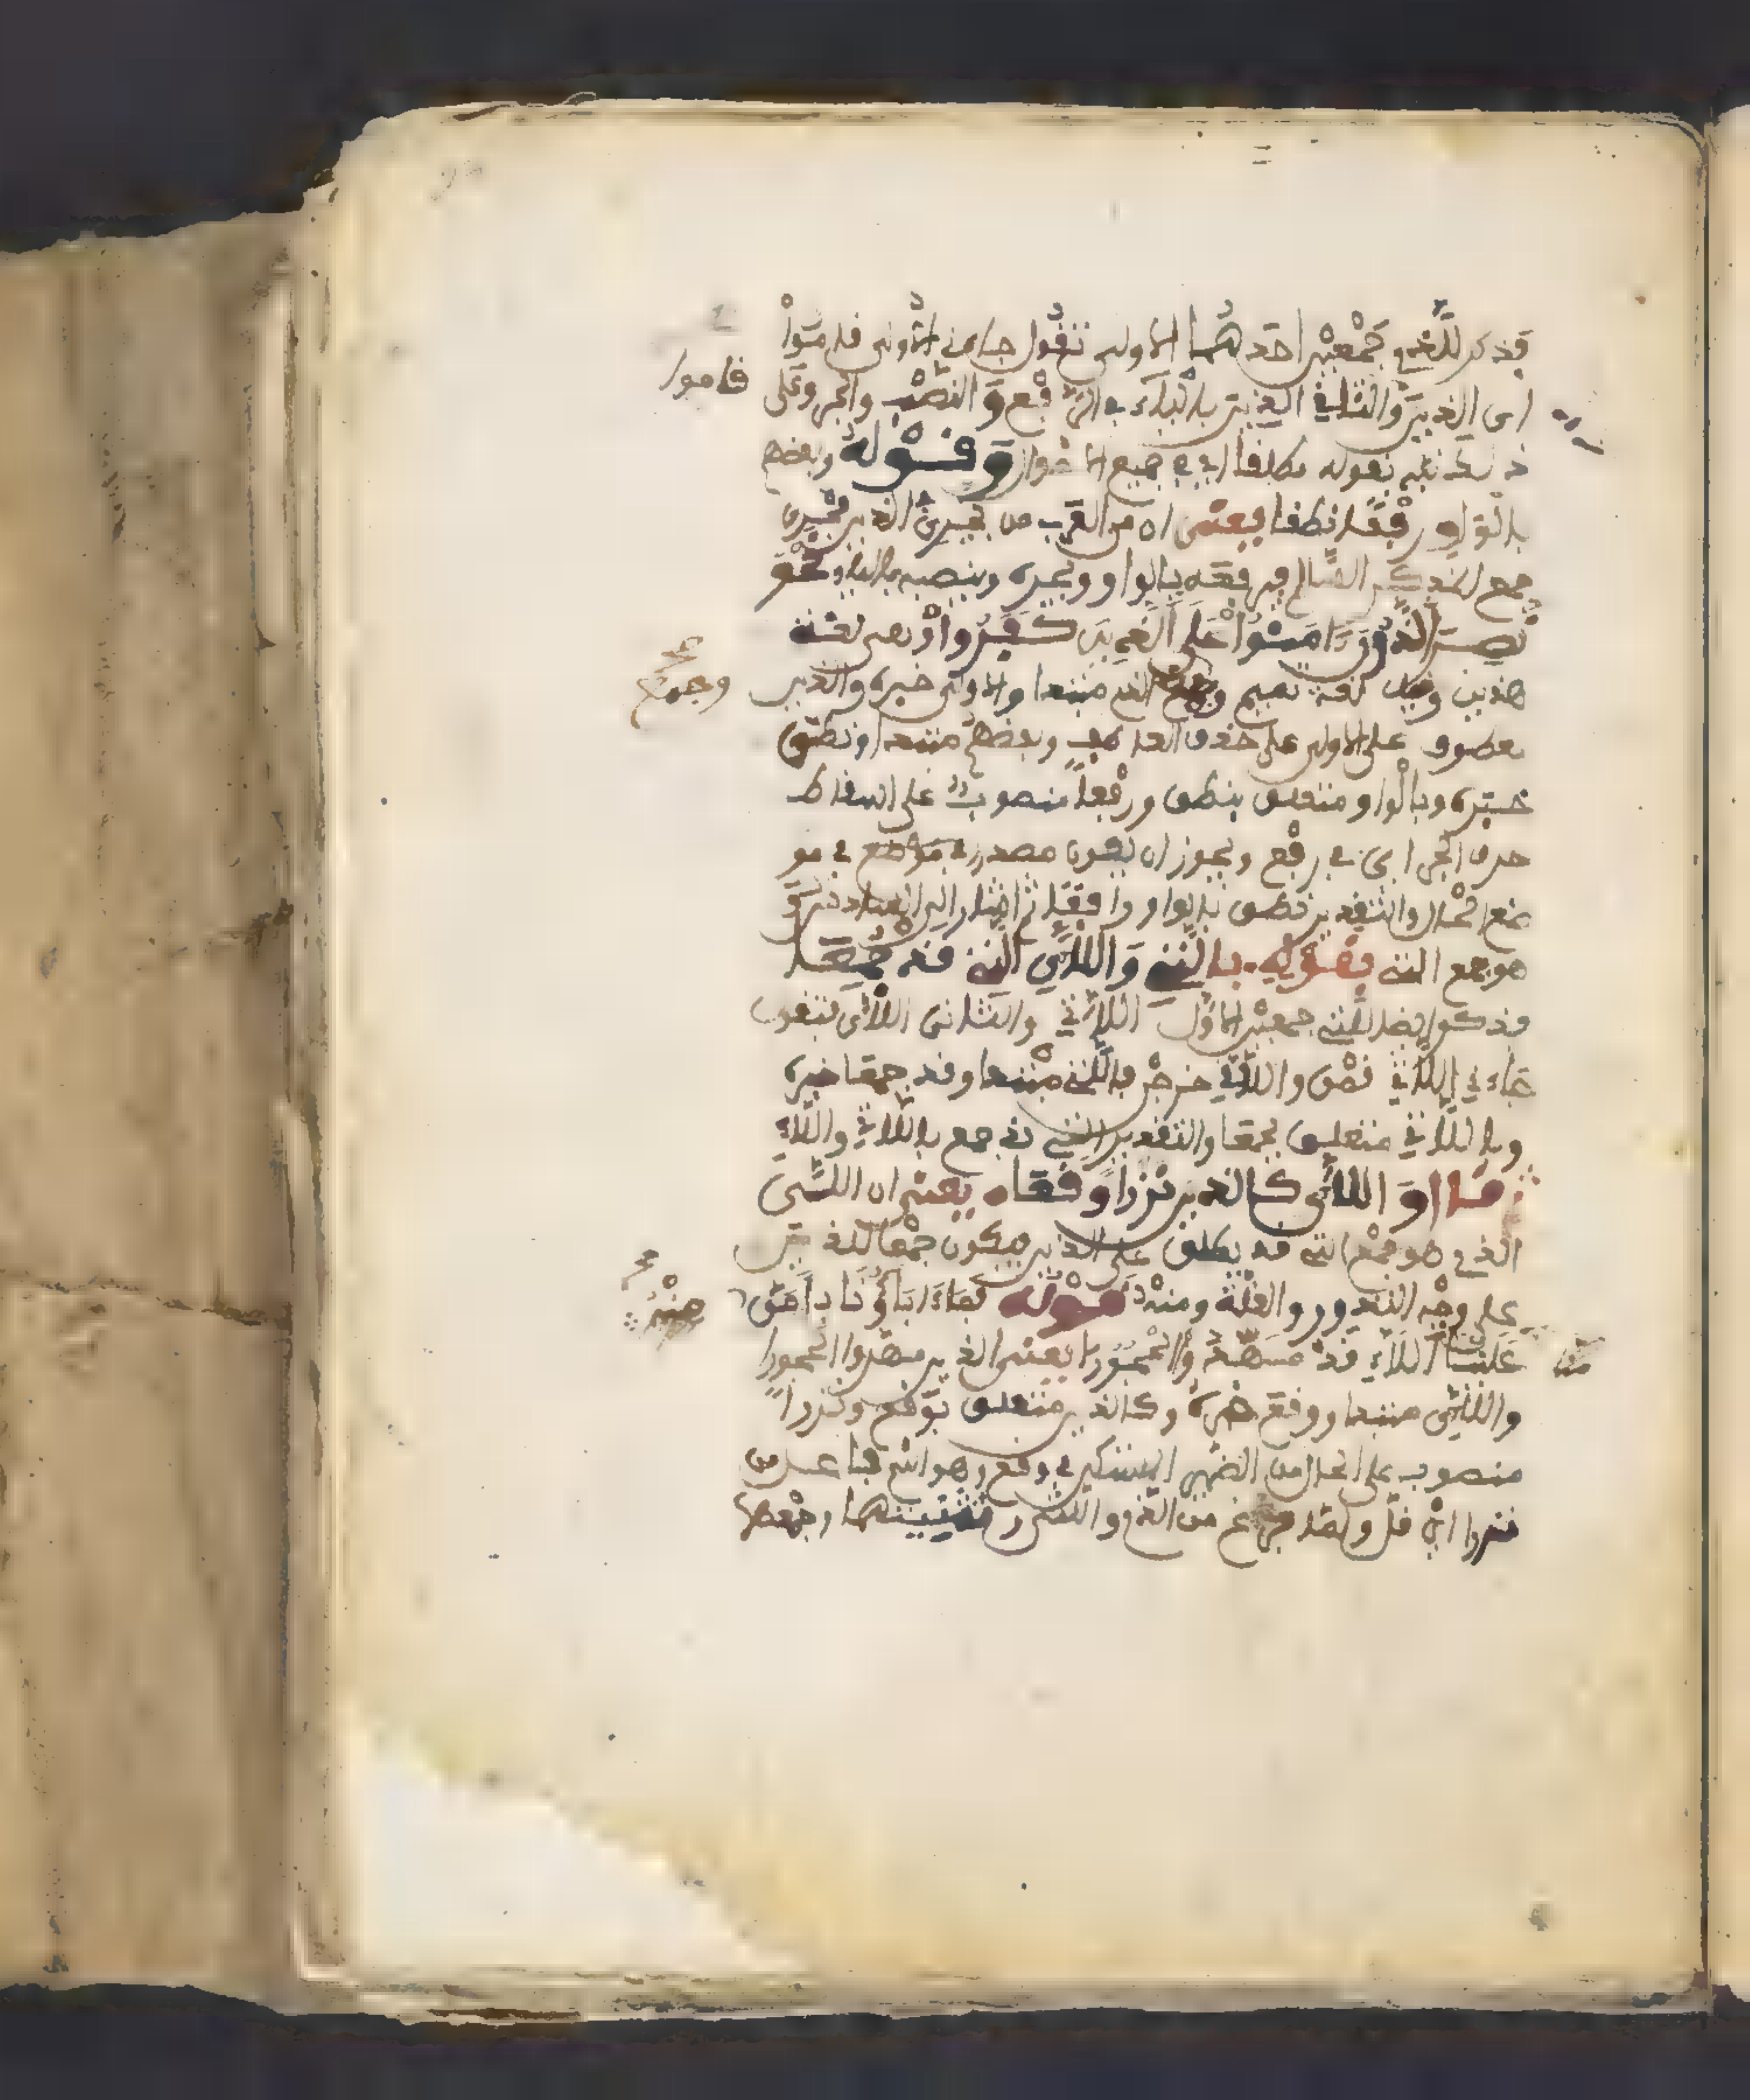 فذكر للذي جمعين احدهما الاولى تقول جاءني الاولى قاموا
قاموا
اى الذين والثاني الذين بالياء في الرفع والنصب والجر وعلى
ذلك نبه بقوله مطلقا اي في جميع الاحوال وقوله وبعضهم
بالواو رفعا نطقا يعنى ان من العرب من يجري الذين مجرى
جمع المذكر السالم فيرفعه بالواو ويجره وينصبه بالياء نحو
نصر الذون ءامنوا على الذين كفروا وهى لغة
هذيل وقيل لغة تميم وجمع الذي مبتدا والاولى خبره والذين
وجمع
معطوف على الاولى على حذف العاطف وبعضهم مبتدا ونطق
خبره وبالواو متعلق بنطق ورفعا منصوب على اسقاط
حرف الجر اى في رفع ويجوز ان يكون مصدرا في موضع في مو
ضع الحال والتقدير نطق بالواو رافعا ثم اشار الى
هو جمع التي بقوله باللات واللاء التي قد جمعا
فذكر ايضا للتي جمعين الاول اللاتي والثانى اللائى فتقول
جاءني اللاتي قمن واللائي خرجن فالتي مبتدا وقد جمعا خبره
وباللاتي متعلق بجمعا والتقدير التي قد جمع باللاتي واللاء
واللائى كالذين نزرا وقعا يعنى ان اللائى
الذي هو جمع التي قد يطلق على الذين فيكون جمعا للذي
على وجه الندور والقلة ومنه قوله فما ءاباؤنا بامن
منه
علينا اللاء قد مهدوا الحجورا يعنى الذين مهدوا الحجورا
واللائى مبتدا ووقع خبره وكالذين متعلق بوقع ونزرا
منصوب على الحال من الضمير المستتر في وقع وهو اسم فاعل من
نزر اى قل ولما فرغ من الذي والتي وتثنيتهما وجمعهما